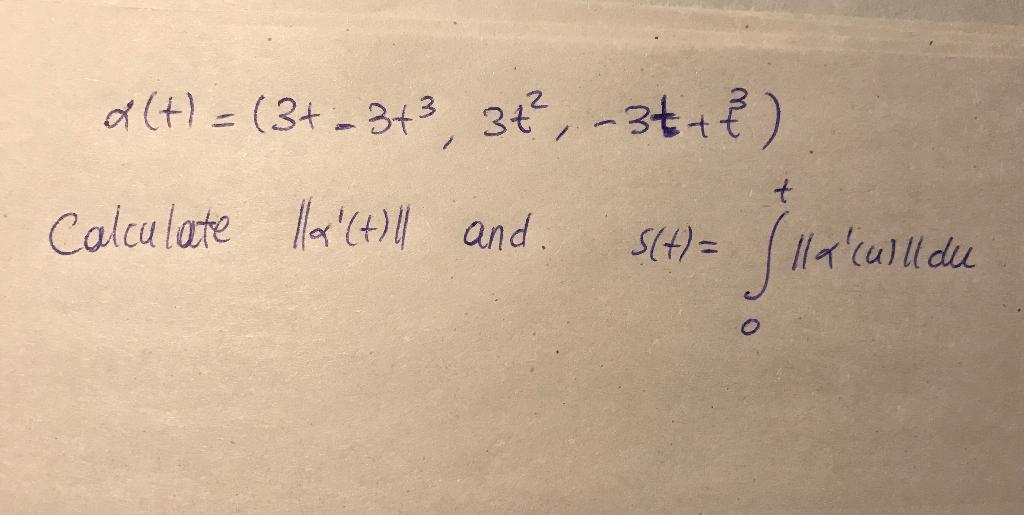 α(t) = (3t - 3t³, 3t², -3t + t³)
Calculate ||α'(t)|| and. s(t) = ∫₀ᵗ ||α'(u)|| du